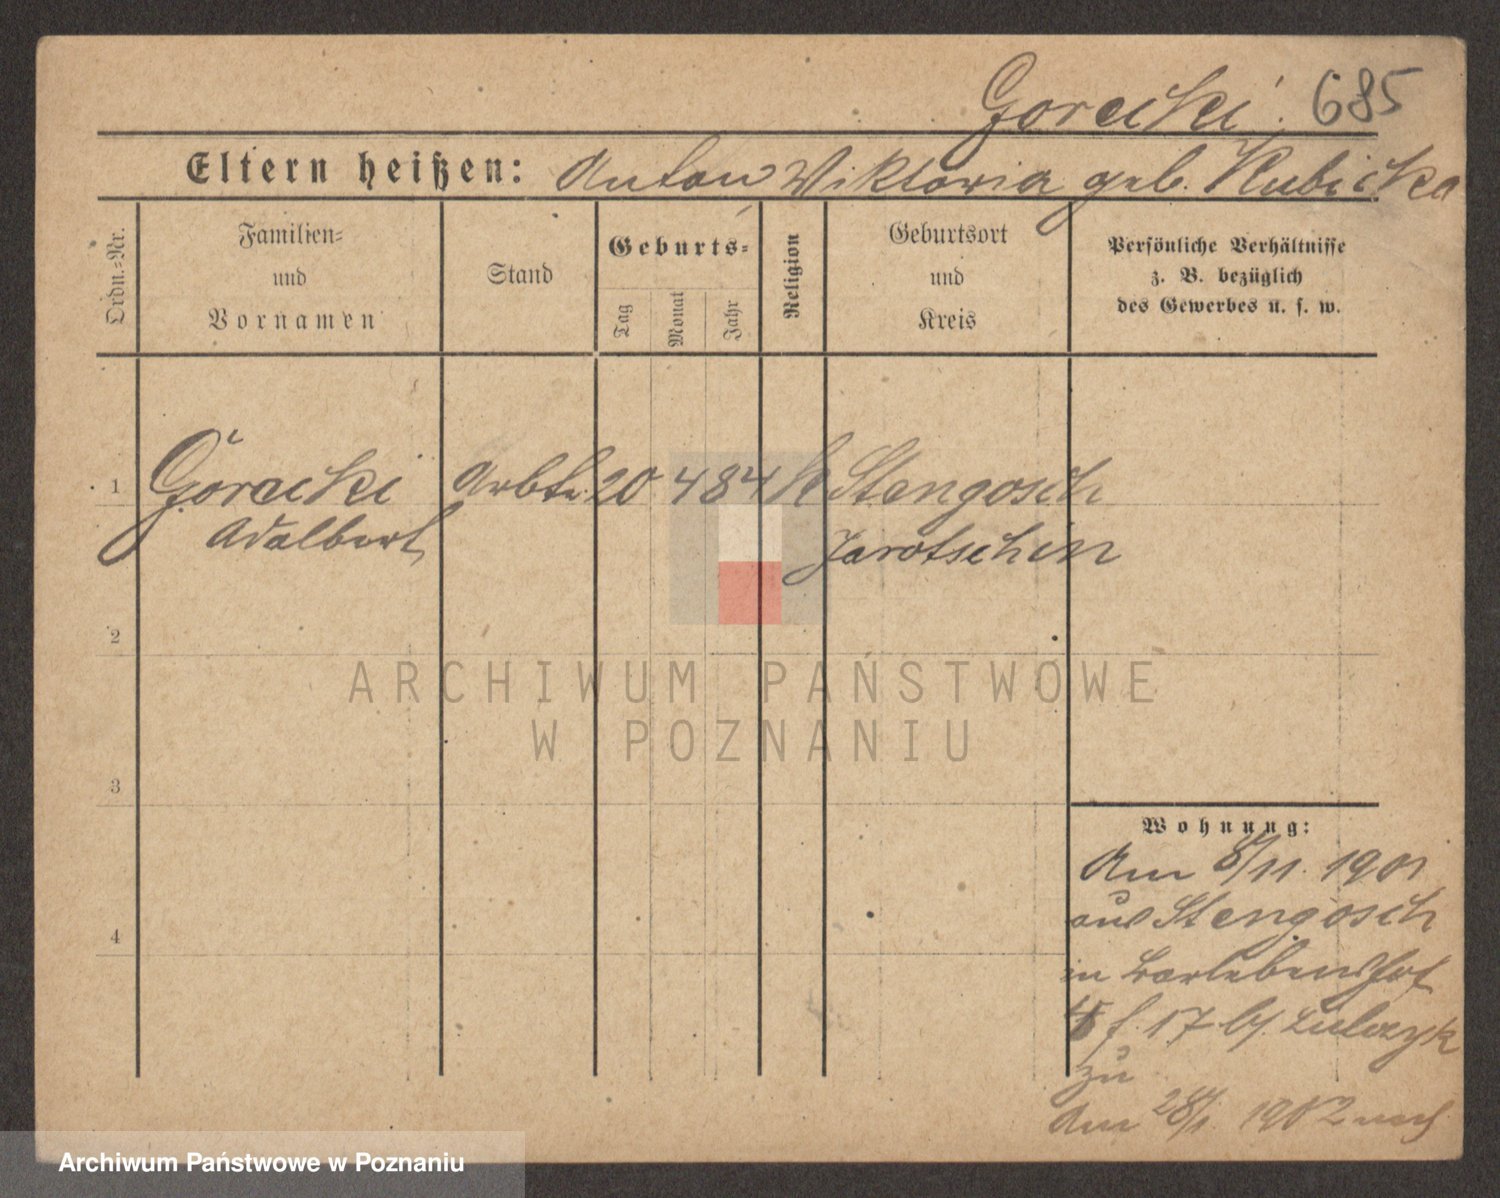 Gorecki. 685
Eltern heißen: Anton Wiktoria geb. Kubicka
Ordn.-Nr.
Familien-
und
Vornamen
Stand
Geburts-
Tag
Monat
Jahr
Religion
Geburtsort
und
Kreis
Persönliche Verhältnisse
z. B. bezüglich
des Gewerbes u. s. w.
1 Gorecki Arbtr. 20 4 84 k Stengosch
Adalbert Jarotschin
2
ARCHIWUM PAŃSTWOWE
W POZNANIU
3
Wohnung:
Am 8/11. 1901
aus Stengosch
in
f. 17 by
zu
4
Am 28/1. 1902 nach
Archiwum Państwowe w Poznaniu